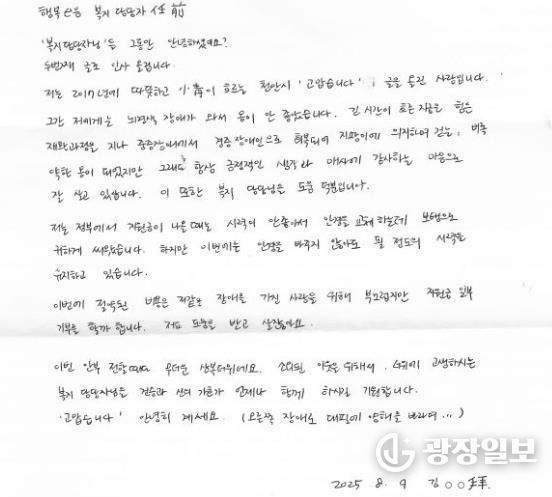 행복e음 복지 담당자 任 前
'복지담당자님'들 그동안 안녕하셨어요?
두번째 글로 인사 올립니다.
저는 2017년에 따뜻하고 小靑이 흐르는 천안시 '고맙습니다' 글을 올린 사람입니다.
그간 저에게는 뇌경색 장애가 와서 몸이 안 좋았습니다. 긴 시간이 흐른 지금은 힘든
재활과정을 지나 중증장애에서 경증장애인으로 회복되어 지팡이에 의지하여 걷는, 비록
약한 몸이 되었지만 그래도 항상 긍정적인 생각과 매사에 감사하는 마음으로
잘 살고 있습니다. 이 또한 복지 담당님들 도움 덕분입니다.
저는 정부에서 지원금이 나올때는 시력이 안좋아서 안경을 교체하는데 보탬으로
귀하게 씌워졌습니다. 하지만 이번에는 안경을 바꾸지 않아도 될 정도의 시력을
유지하고 있습니다.
이번에 절약된 비용은 저같은 장애를 가진 사람을 위해 부끄럽지만 지원금 일부
기부를 할까 합니다. 저도 도움을 받고 살잖아요.
이번 안부 전할때는 무더운 삼복더위에요. 소외된 이웃을 위해서, 더위에 고생하시는
복지 담당자님들 건승과 신의 가호가 언제나 함께 하시길 기원합니다.
'고맙습니다' 안녕히 계세요. (오른쪽 장애로 대필에 양해를 바라며...)
2025 8. 9 김○○拜.
광장일보